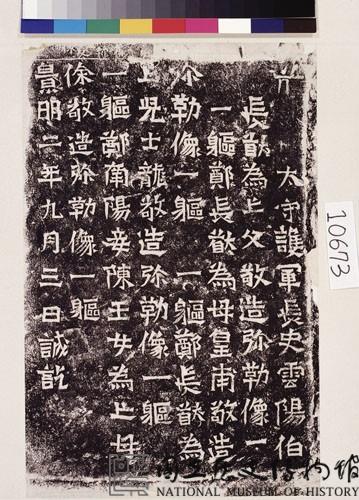 太守護軍長史雲陽伯
長猷為亡父敬造弥勒像一
一軀鄭長猷為母皇甫敬造
弥勒像一軀 一軀鄭長猷為
亡兒士龍敬造弥勒像一軀
一軀鄭南陽妾陳王女為亡母
徐敬造弥勒像一軀
景明二年九月三日誡訖
10673
國立歷史博物館
NATIONAL MUSEUM OF HISTORY